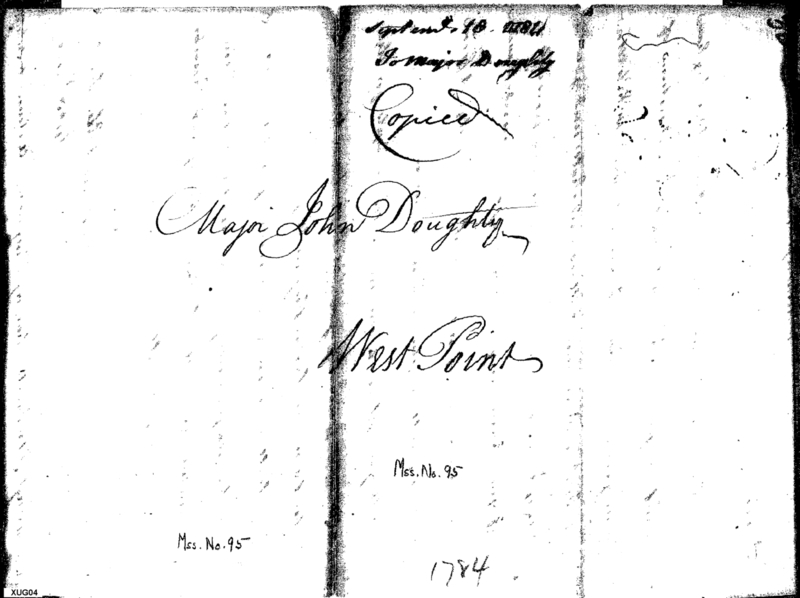 Septemb. 18. 1784
To Major Doughty
Copied
Major John Doughty
West Point
Mss. No. 95
Mss. No. 95
1784
XUG04